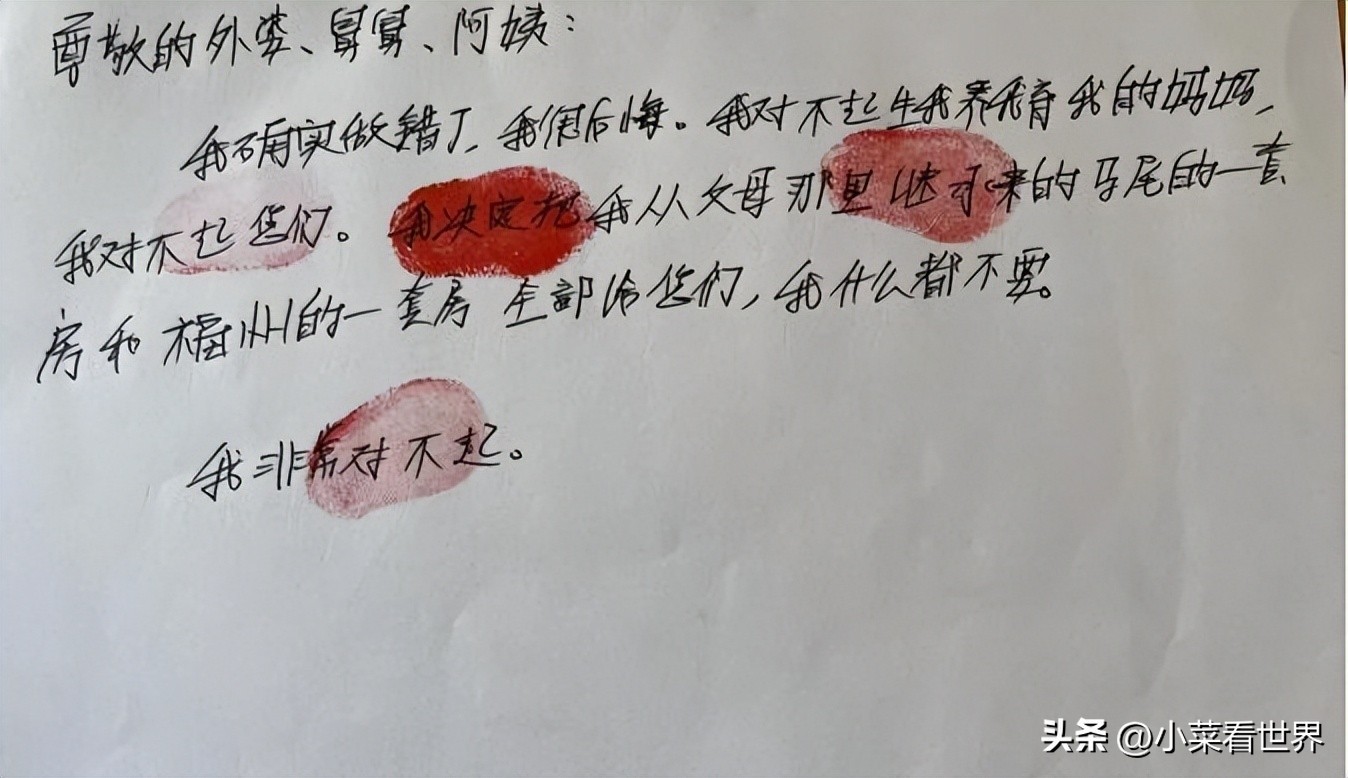 尊敬的外婆、舅舅、阿姨：
我确实做错了，我很后悔。我对不起生我养我育我的妈妈，
我对不起您们。我决定把我从父母那里继承来的马尾的一套
房和福州的一套房全部给您们，我什么都不要。
我非常对不起。
头条 @小菜看世界